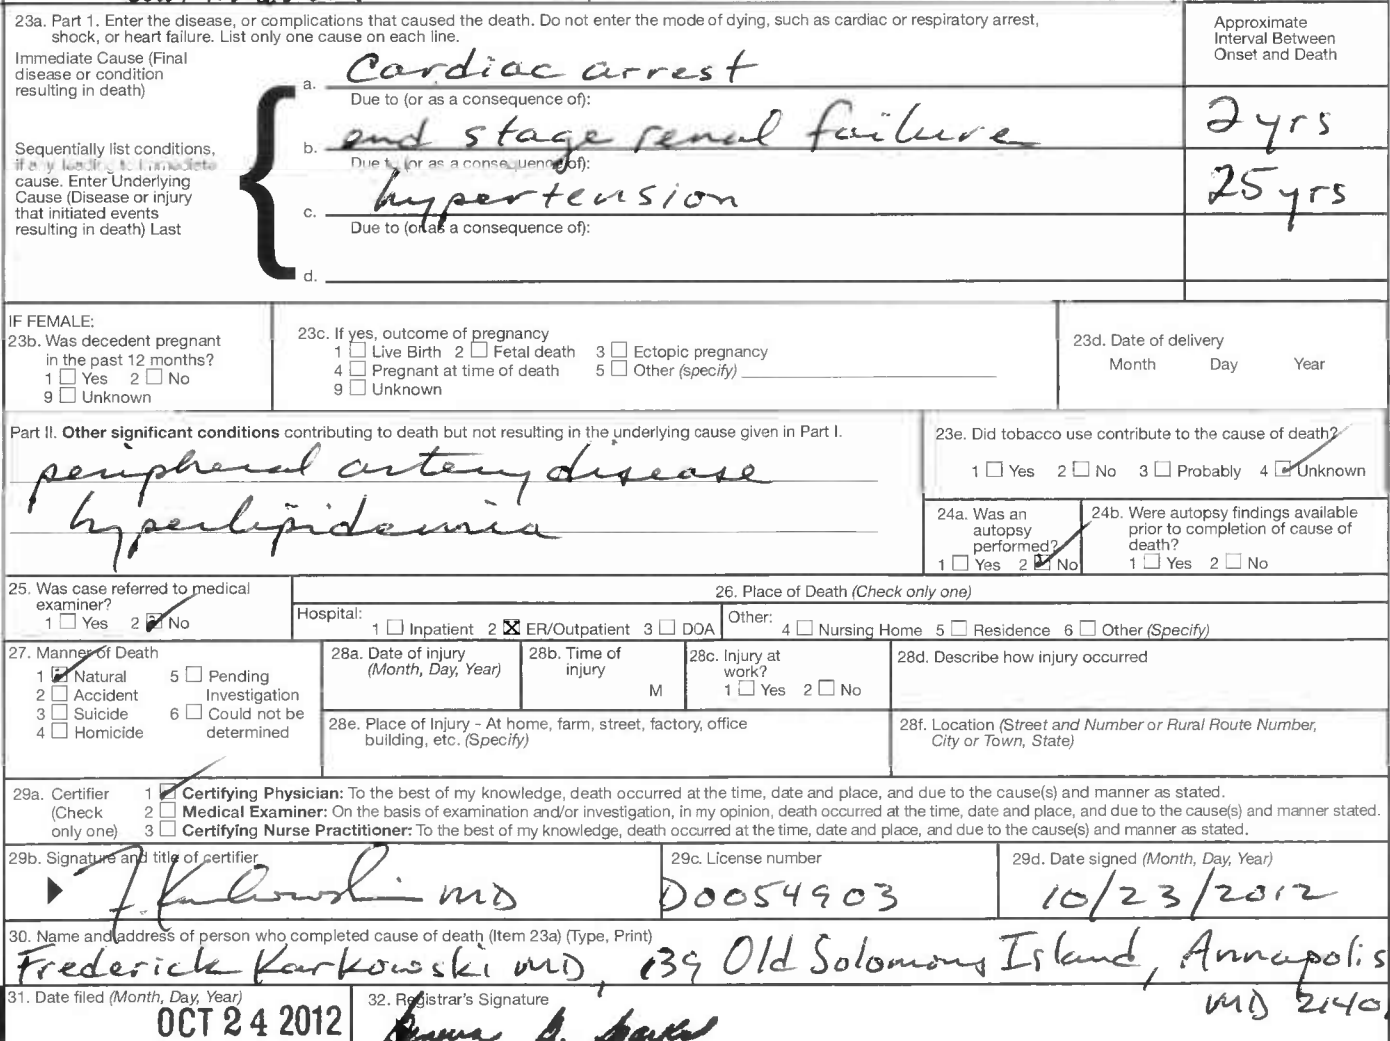 23a. Part 1. Enter the disease, or complications that caused the death. Do not enter the mode of dying, such as cardiac or respiratory arrest,
shock, or heart failure. List only one cause on each line.
Approximate
Interval Between
Onset and Death
Immediate Cause (Final
disease or condition
resulting in death)
a. Cardiac arrest
Due to (or as a consequence of):
b. end stage renal failure 2 yrs
Sequentially list conditions,
if any leading to immediate
cause. Enter Underlying
Cause (Disease or injury
that initiated events
resulting in death) Last
Due to (or as a consequence of):
c. hypertension 25 yrs
Due to (or as a consequence of):
d.
IF FEMALE:
23b. Was decedent pregnant
in the past 12 months?
1 Yes 2 No
9 Unknown
23c. If yes, outcome of pregnancy
1 Live Birth 2 Fetal death 3 Ectopic pregnancy
4 Pregnant at time of death 5 Other (specify)
9 Unknown
23d. Date of delivery
Month Day Year
Part II. Other significant conditions contributing to death but not resulting in the underlying cause given in Part I.
peripheral artery disease
hyperlipidemia
23e. Did tobacco use contribute to the cause of death?
1 Yes 2 No 3 Probably 4 Unknown
24a. Was an
autopsy
performed?
1 Yes 2 No
24b. Were autopsy findings available
prior to completion of cause of
death?
1 Yes 2 No
25. Was case referred to medical
examiner?
1 Yes 2 No
26. Place of Death (Check only one)
Hospital: 1 Inpatient 2 ER/Outpatient 3 DOA
Other: 4 Nursing Home 5 Residence 6 Other (Specify)
27. Manner of Death
1 Natural 5 Pending
2 Accident Investigation
3 Suicide 6 Could not be
4 Homicide determined
28a. Date of injury
(Month, Day, Year)
28b. Time of
injury
M
28c. Injury at
work?
1 Yes 2 No
28d. Describe how injury occurred
28e. Place of Injury - At home, farm, street, factory, office
building, etc. (Specify)
28f. Location (Street and Number or Rural Route Number,
City or Town, State)
29a. Certifier
(Check
only one)
1 Certifying Physician: To the best of my knowledge, death occurred at the time, date and place, and due to the cause(s) and manner as stated.
2 Medical Examiner: On the basis of examination and/or investigation, in my opinion, death occurred at the time, date and place, and due to the cause(s) and manner stated.
3 Certifying Nurse Practitioner: To the best of my knowledge, death occurred at the time, date and place, and due to the cause(s) and manner as stated.
29b. Signature and title of certifier
F. Karkowski MD
29c. License number
D0054903
29d. Date signed (Month, Day, Year)
10/23/2012
30. Name and address of person who completed cause of death (Item 23a) (Type, Print)
Frederick Karkowski MD, 139 Old Solomons Island, Annapolis
MD 2140
31. Date filed (Month, Day, Year)
OCT 24 2012
32. Registrar's Signature